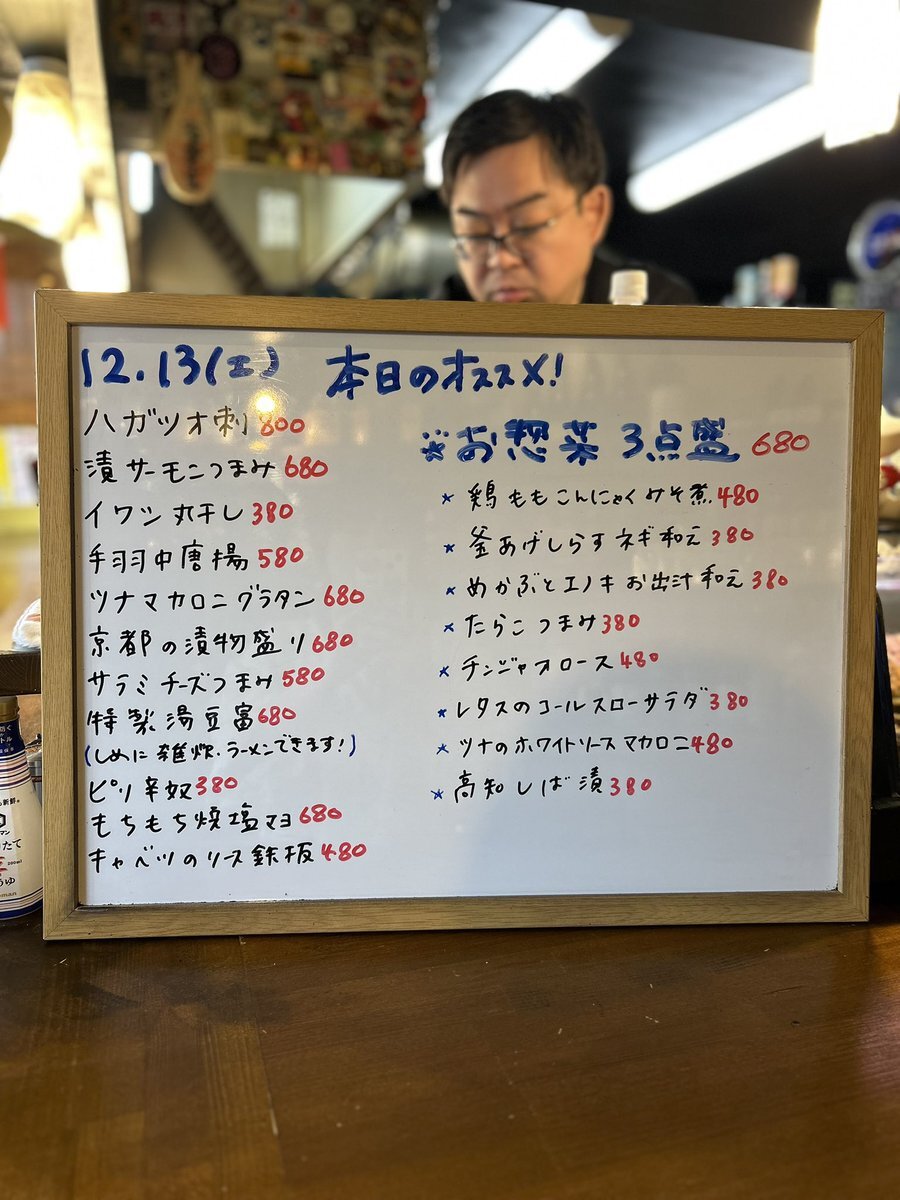 12.13(土) 本日のオススメ!
ハガツオ刺 800
漬サーモンつまみ 680
イワシ丸干し 380
手羽中唐揚 580
ツナマカロニグラタン 680
京都の漬物盛り 680
サラミチーズつまみ 580
特製湯豆富 680
(しめに雑炊.ラーメンできます!)
ピリ辛奴 380
もちもち焼塩マヨ 680
キャベツのソース鉄板 480
※お惣菜3点盛 680
★ 鶏ももこんにゃくみそ煮 480
★ 釜あげしらすネギ和え 380
★ めかぶとエノキお出汁和え 380
★ たらこつまみ 380
★ チンジャオロース 480
★ レタスのコールスローサラダ 380
★ ツナのホワイトソースマカロニ 480
★ 高知しば漬 380